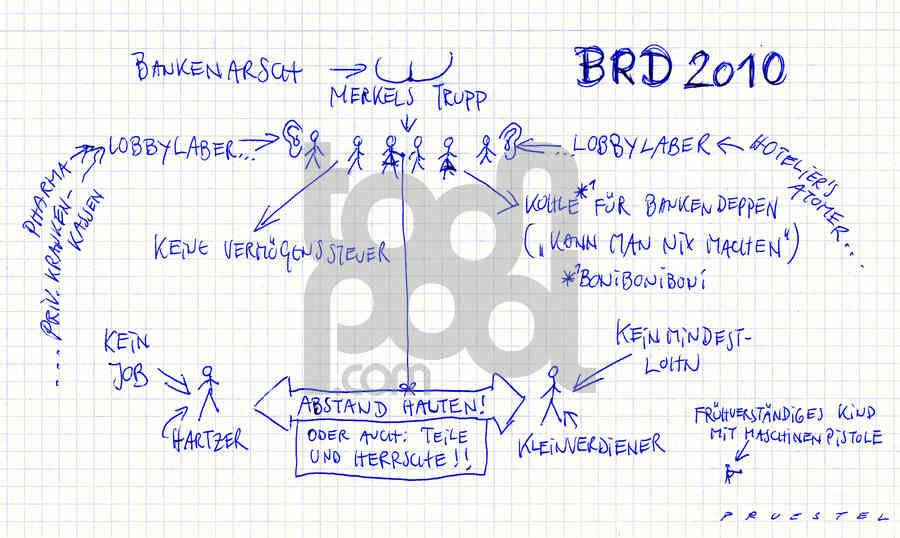 BANKENARSCH
BRD 2010
MERKELS TRUPP
LOBBYLABER...
...LOBBYLABER
HOTELIER'S
ATOMER...
PHARMA
....PRIV. KRANKEN-
KASSEN
KEINE VERMÖGENSSTEUER
KOHLE*¹ FÜR BANKENDEPPEN
("KANN MAN NIX MACHEN")
*¹BONIBONIBONI
toon
pool
.com
KEIN
JOB
HARTZER
ABSTAND HALTEN!
ODER AUCH: TEILE
UND HERRSCHE!!
KEIN MINDEST-
LOHN
KLEINVERDIENER
FRÜHVERSTÄNDIGES KIND
MIT MASCHINENPISTOLE
PRUESTEL